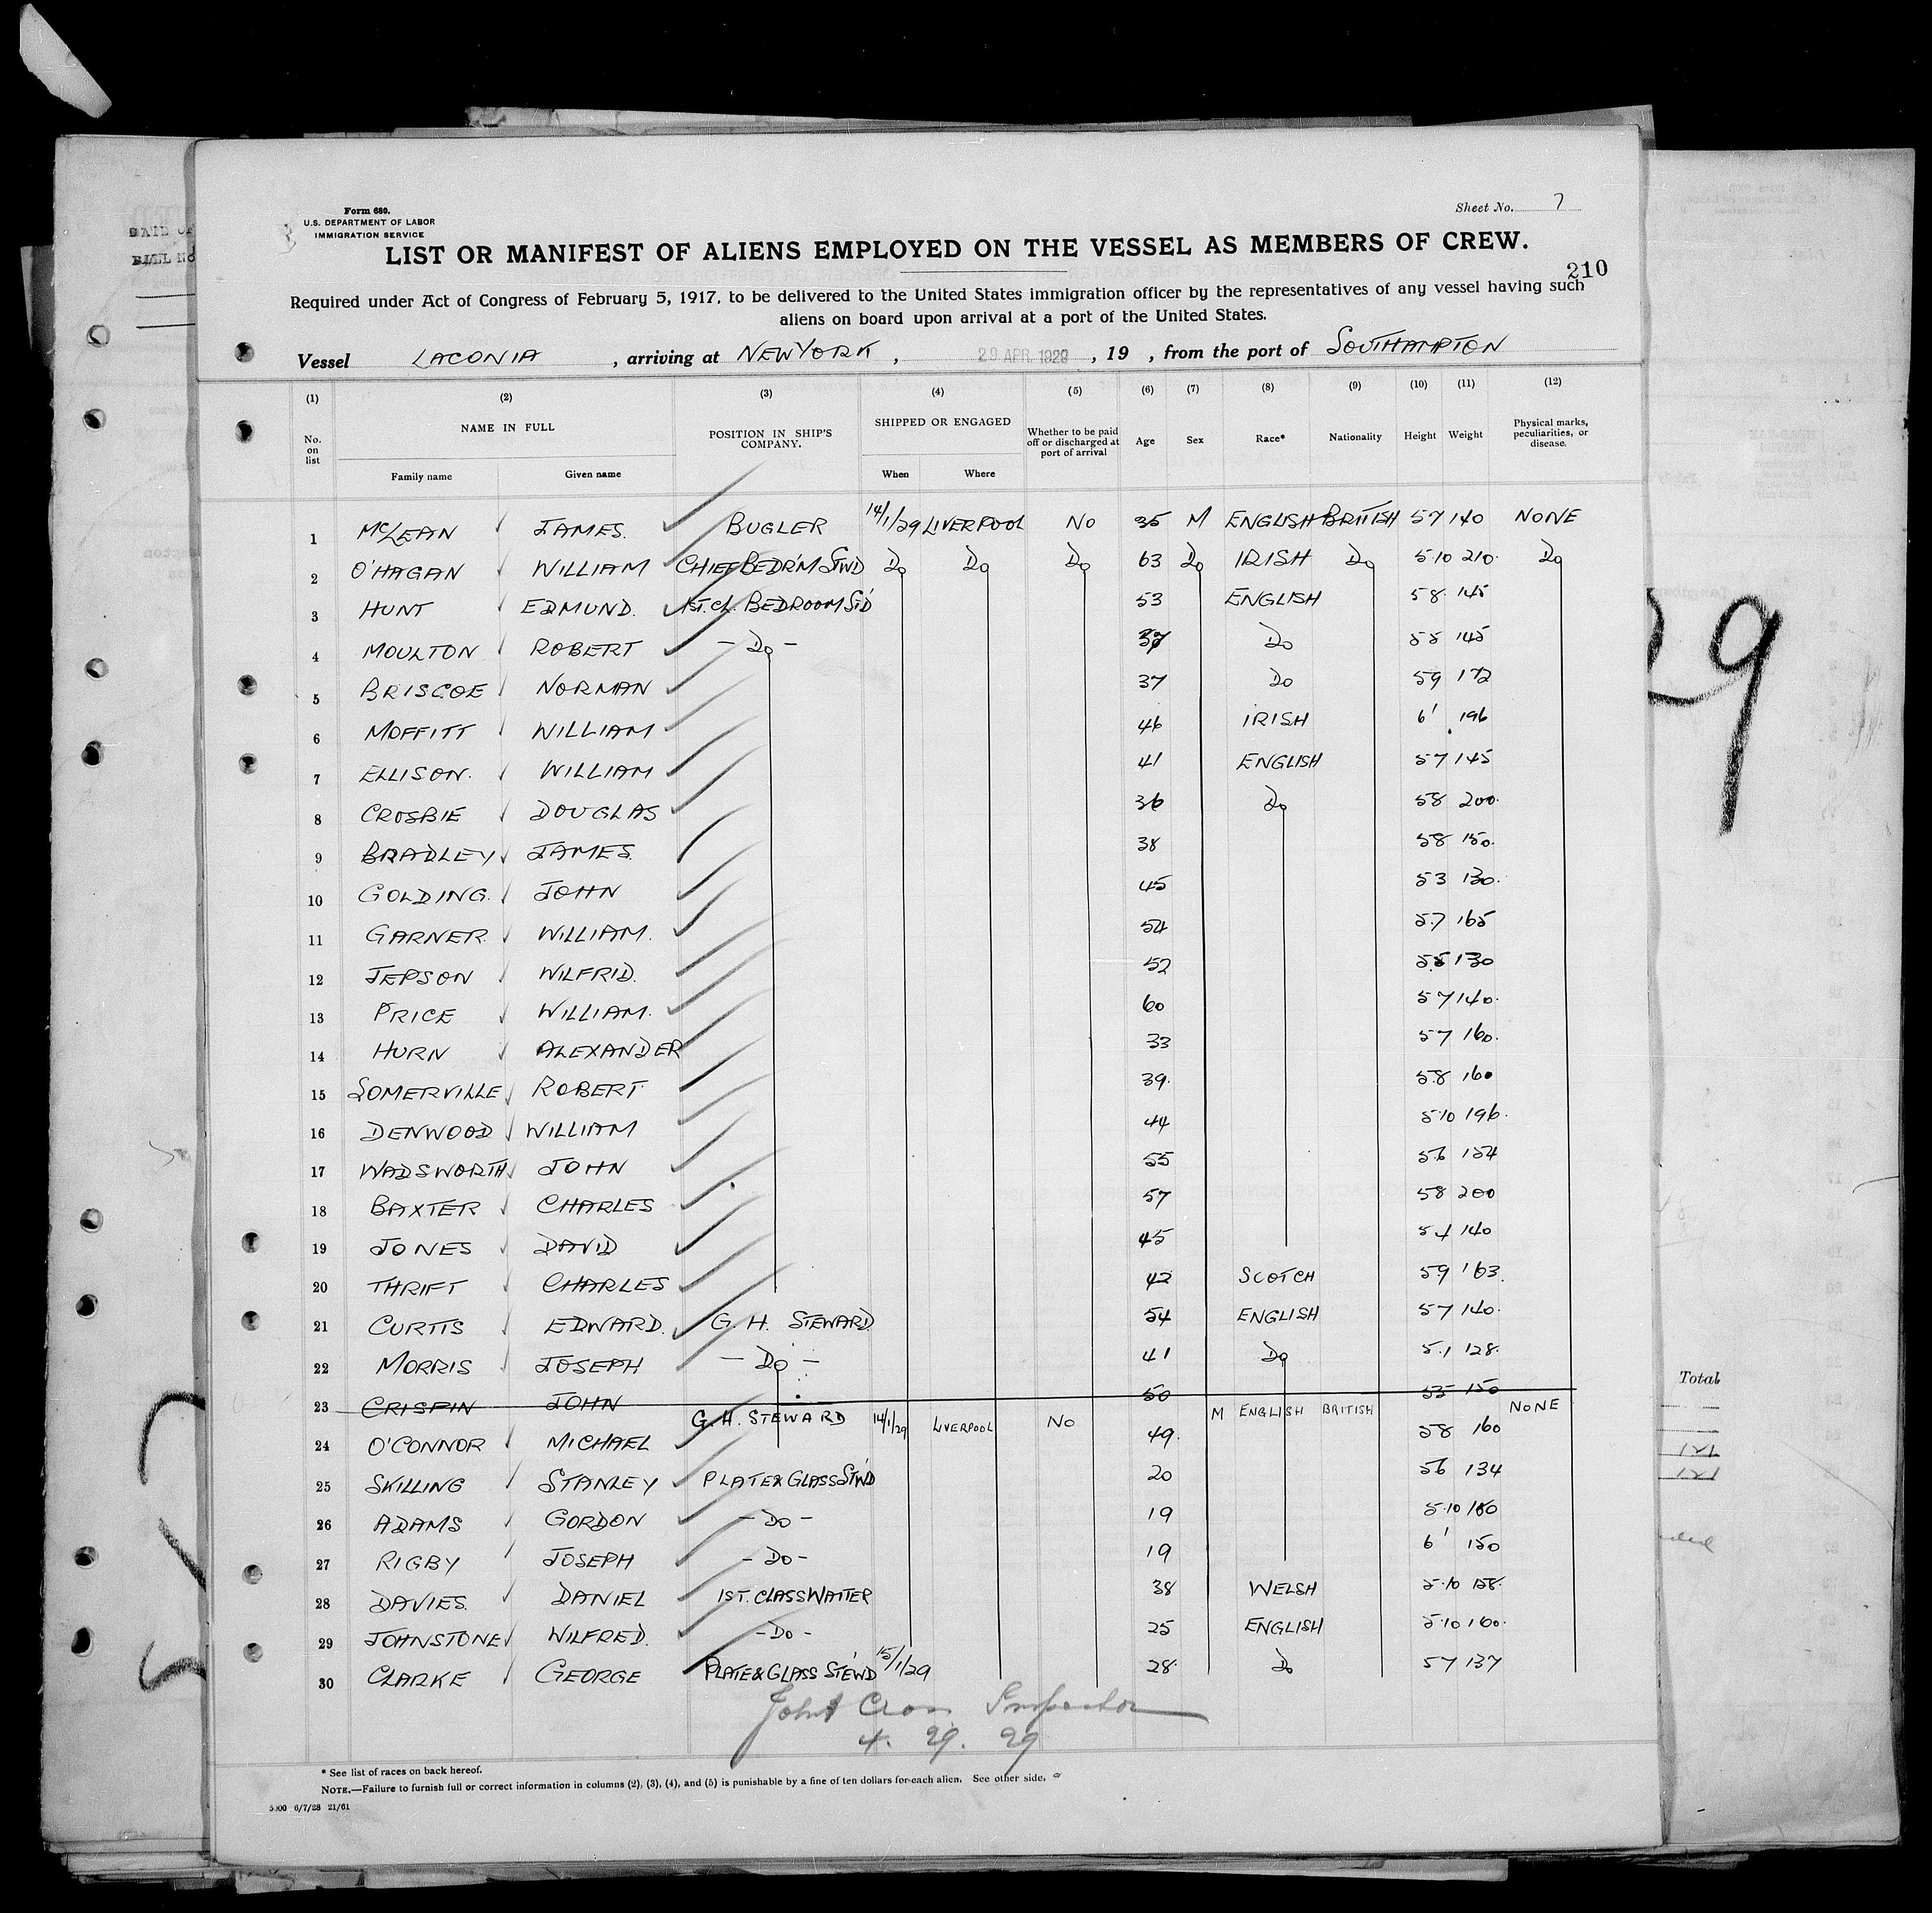 Form 680.
U.S. DEPARTMENT OF LABOR
IMMIGRATION SERVICE
Sheet No. 7
LIST OR MANIFEST OF ALIENS EMPLOYED ON THE VESSEL AS MEMBERS OF CREW.
210
Required under Act of Congress of February 5, 1917, to be delivered to the United States immigration officer by the representatives of any vessel having such
aliens on board upon arrival at a port of the United States.
Vessel LACONIA , arriving at NEW YORK , 29 APR. 1929 , 19 , from the port of SOUTHAMPTON
(1) (2) (3) (4) (5) (6) (7) (8) (9) (10) (11) (12)
No. on list NAME IN FULL POSITION IN SHIP'S COMPANY. SHIPPED OR ENGAGED Whether to be paid off or discharged at port of arrival Age Sex Race* Nationality Height Weight Physical marks, peculiarities, or disease.
Family name Given name When Where
1 McLEAN JAMES. BUGLER 14/1/29 LIVERPOOL NO 35 M ENGLISH BRITISH 57 140 NONE
2 O'HAGAN WILLIAM CHIEF BEDR'M STWD Do Do Do 63 Do IRISH Do 5·10 210· Do
3 HUNT EDMUND. 1ST. CL. BEDROOM ST'D 53 ENGLISH 58· 145
4 MOULTON ROBERT - Do - 37 Do 55 145
5 BRISCOE NORMAN 37 Do 59 172
6 MOFFITT WILLIAM 46 IRISH 6' 196
7 ELLISON. WILLIAM 41 ENGLISH 57 145
8 CROSBIE DOUGLAS 36 Do 58 200·
9 BRADLEY JAMES. 38 58 150·
10 GOLDING. JOHN 45 53 130·
11 GARNER. WILLIAM. 54 5.7 165
12 JEPSON WILFRID. 52 5.5 130
13 PRICE WILLIAM. 60 57 140·
14 HURN ALEXANDER 33 57 160·
15 SOMERVILLE ROBERT 39· 5.8 160
16 DENWOOD WILLIAM 44 5·10 196·
17 WADSWORTH JOHN 55 5.6 154
18 BAXTER CHARLES 57 58 200
19 JONES DAVID 45 5 4 140
20 THRIFT CHARLES 42 SCOTCH 59 163.
21 CURTIS EDWARD. G. H. STEWARD. 54 ENGLISH 57 140·
22 MORRIS JOSEPH - Do - 41 Do 5.1 128·
23 CRISPIN JOHN 50 55 150
24 O'CONNOR MICHAEL G.H. STEWARD 14/1/29 LIVERPOOL NO 49· M ENGLISH BRITISH 58 160 NONE
25 SKILLING STANLEY PLATE & GLASS STW'D 20 56 134
26 ADAMS GORDON - Do - 19 5·10 160
27 RIGBY JOSEPH - Do - 19 6' 150
28 DAVIES. DANIEL 1ST. CLASS WAITER 38 WELSH 5·10 158·
29 JOHNSTONE WILFRED. - Do - 25 ENGLISH 5·10 160·
30 CLARKE GEORGE PLATE & GLASS STEW'D 15/1/29 28· Do 57 137
Inspector
4. 29. 29
* See list of races on back hereof.
NOTE.—Failure to furnish full or correct information in columns (2), (3), (4), and (5) is punishable by a fine of ten dollars for each alien. See other side.
6/7/28 21/61
29
Total
121
121